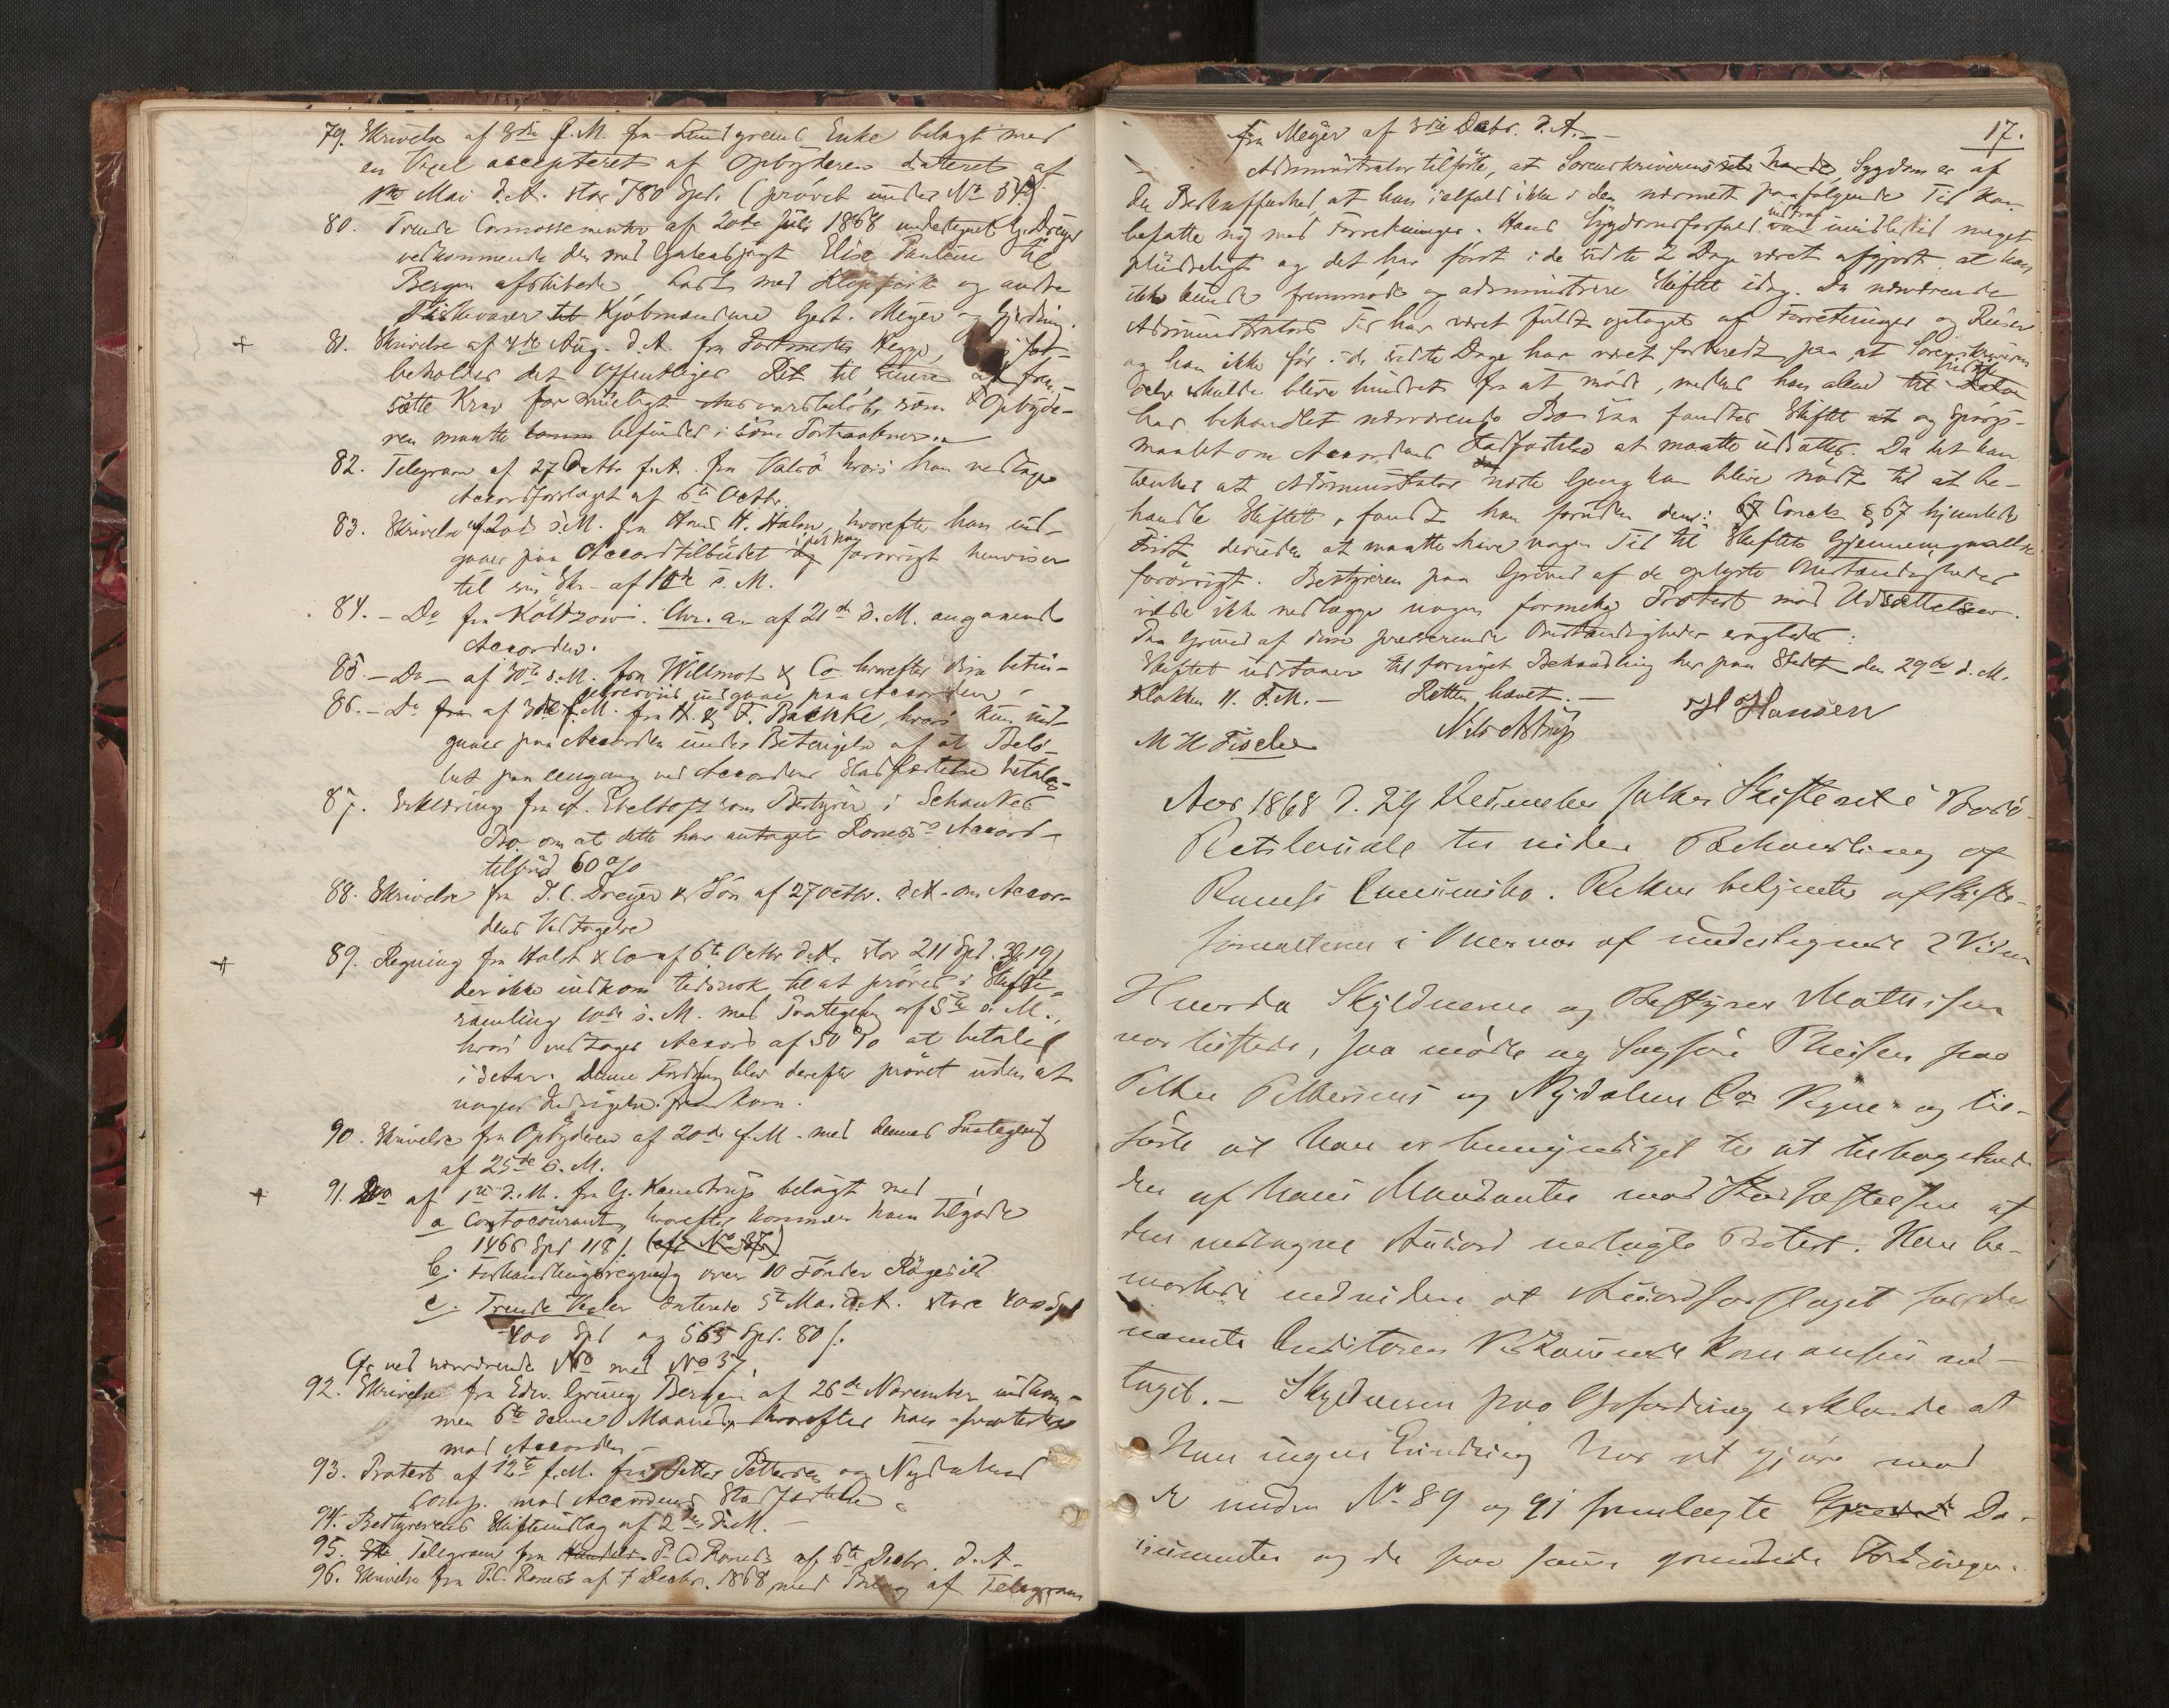 79. Skrivelse af 3die f.M. fra Lundgreens Enke belagt med
en Vexel accepteret af Opbyderen dateret af
1ste Mai d.A. stor 780 Spd. (prövet under No 54)
80. Trende Connossementer af 20de Juli 1868 undertegnet G. Dreyer
vedkommende der med Galeasjagt Elise Pauline til
Bergen afskibede Last med Klipfisk og andre
Fiskevarer til Kjöbmændene Gert. Meyer og Gjerding.
+ 81. Skrivelse af 4de Aug. d.A. fra Hegge,
beholder det Offentliges Ret til at frem-
sætte Krav for mueligt Ansvarsbeløb, som Opbyde-
ren maatte befindes i
82. Telegram af 27 Octbr f.A. fra Valsö hvori han vedtager
Accordforslaget af 6te Octbr.
83. Skrivelse af 20de s.M. fra Hans H. Holm, hvorefter han ind-
gaaer paa Accordtilbudet og forøvrigt henviser
til sin Skr. af 10de s.M.
84. - Do fra Költzow i Chr.a. af 21de s.M. angaaende
Accorden.
85. - Do - af 30te s.M. fra Willmot & Co hvorefter disse betin-
gelsesviis indgaaer paa Accorden -
86. - Do fra af 3die f.M. fra H. & F. Bachke, hvori hun ind-
gaaer paa Accorden under Betingelse af at Belö-
bet paa eengang ved Accordens Stadfæstelse betales
87. Erklæring fra A. Ebeltoft som Bestyrer i Schankes
Bo om at dette har antaget Roness's Accord-
tilbud 60 %
88. Skrivelse fra J. C. Dreyer & Sön af 27 Octbr. d.A. om Accor-
dens Vedtagelse
+ 89. Regning fra Holst & Co af 6te Octbr d.A. stor 211 Spd.
der ikke indkom tidsnok til at pröves i Skifte-
samling 10de s.M. med Paategning af 5te s.M.,
hvori vedtages Accord af 50 % at betales
i deAar. Denne Fordring blev derefter prövet uden at
nogen Indsigelse fremkom.
90. Skrivelse fra Opbyderen af 20de f.M. med dennes Paategning
af 25de s.M.
+ 91. Do af 1ste d.M. fra G. Kamstrup belagt med
a Contocourant, hvorefter kommer ham tilgode
1466 Spd 118 s. (cfr No 37)
b. Forhandlingsregning over 10 Tönder Rögesild
c. Trende Vexler daterede 5te Mai d.A. store 400 Spd
400 Spd og 565 Spd. 80 s.
Cfr ved nærværende No med No 37.
92. Skrivelse fra Edv. Grüng Bergen af 26de November indkom-
men 6te denne Maaned, hvorefter han protesterer
mod Accorden -
93. Protest af 12te f.M. fra Petter Pettersen og Nydalens
Comp. mod Accordens Stadfæstelse.
94. Bestyrerens Skifteindlæg af 2den d.M. -
95. Telegram fra P. C. Roness af 6te Decbr. d.A.
96. Skrivelse fra P.C. Roness af 7 Decbr. 1868 med Bilag af Telegram
17.
fra Meyer af 3die Decbr. d.A. -
Administrator tilförte, at Sorenskriverens Sygdom er af
den Beskaffenhed, at han ialfald ikke i den nærmest paafølgende Tid kan
befatte sig med Forretninger. Hans Sygdomsforfald indtraf imidlertid meget
pludseligt og det har först i de sidste 2 Dage været afgjort at han
ikke kunde fremmöde og administrere Skiftet idag. Da nærværende
Administrators Tid har været fuldt optaget af Forretninger og Reiser
og han ikke för i de sidste Dage har været forberedt paa at Sorenskriveren
selv skulde blive hindret fra at möde, medens han alene hidtil
har behandlet nærværende Bo saa fandtes Skiftet og Spörgs-
maalet om Accordens Stadfæstelse at maatte udsættes. Da det kan
tænkes at Administrator næste Gang kan blive nödt til at be-
handle Skiftet, fandt han foruden den i Conck. § 67 hjemlede
Frist desuden at maatte have nogen Tid til Skiftets Gjennemgaaelse
forövrigt. Bestyreren paa Grund af de oplyste Omstændigheder
vilde ikke nedlægge nogen formelig Protest mod Udsættelsen.
Paa Grund af disse presserende Omstændigheder eragtedes:
Skiftet udstaaer til foreviget Behandling her paa Stedet den 29de d.M.
Klokken 11. F.M. - Retten hævet. -
M H Fischer Nils Astrup H Hansen
Aar 1868 d. 29 December holdtes Skifteret i Bodö
Retslocale til videre Behandling af
Roness's Concursbo. Retten betjentes af Skifte-
forvalteren i Overvær af undertegnede 2 Vidner
Hvorda Skyldneren og Bestyrer Mathisen
var tilstede, saa mödte og Sagförer Theisen paa
Petter Pettersens og Nydalens Co's Vegne og til-
förte at han er bemyndiget til at tilbagekalde
den af hans Mandanter mod Stadfæstelsen af
den vedtagne Accord nedlagte Protest. Han be-
mærkede endvidere at Accordforslaget for de
nævnte Creditorers Vedkommende kan ansees ved-
taget. - Skyldneren paa Opfordring erklærede at
han ingen Erindring har at gjöre mod
de under No 89 og 91 fremlagte Do-
cumenter og de paa samme grundede Fordringer.